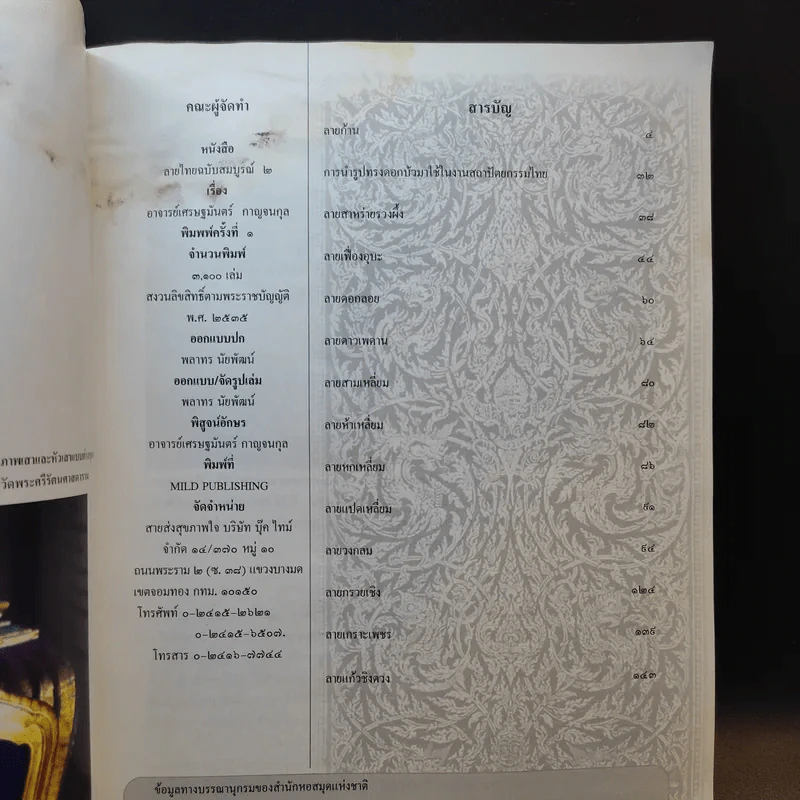 คณะผู้จัดทำ
หนังสือ
ลายไทยฉบับสมบูรณ์ ๒
เรื่อง
อาจารย์เศรษฐมันตร์ กาญจนกุล
พิมพ์ครั้งที่ ๑
จำนวนพิมพ์
๓,๑๐๐ เล่ม
สงวนลิขสิทธิ์ตามพระราชบัญญัติ
พ.ศ. ๒๕๓๕
ออกแบบปก
พลาทร นัยพัฒน์
ออกแบบ/จัดรูปเล่ม
พลาทร นัยพัฒน์
พิสูจน์อักษร
อาจารย์เศรษฐมันตร์ กาญจนกุล
พิมพ์ที่
MILD PUBLISHING
จัดจำหน่าย
สายส่งสุขภาพใจ บริษัท บุ๊ค ไทม์
จำกัด ๑๔/๓๗๐ หมู่ ๑๐
ถนนพระราม ๒ (ซ. ๓๘) แขวงบางมด
เขตจอมทอง กทม. ๑๐๑๕๐
โทรศัพท์ ๐-๒๔๑๕-๒๖๒๑
๐-๒๔๑๕-๖๕๐๗.
โทรสาร ๐-๒๔๑๖-๗๗๔๔
สารบัญ
ลายก้าน ๔
การนำรูปทรงดอกบัวมาใช้ในงานสถาปัตยกรรมไทย ๓๒
ลายสาหร่ายรวงผึ้ง ๓๘
ลายเฟื่องอุบะ ๔๔
ลายดอกลอย ๖๐
ลายดาวเพดาน ๖๔
ลายสามเหลี่ยม ๘๐
ลายห้าเหลี่ยม ๘๒
ลายหกเหลี่ยม ๘๖
ลายแปดเหลี่ยม ๙๑
ลายวงกลม ๙๔
ลายกรวยเชิง ๑๒๔
ลายเกราะเพชร ๑๓๙
ลายแก้วชิงดวง ๑๔๓
ข้อมูลทางบรรณานุกรมของสำนักหอสมุดแห่งชาติ
ภาพเสาและหัวเสาแบบ
วัดพระศรีรัตนศาสดาราม